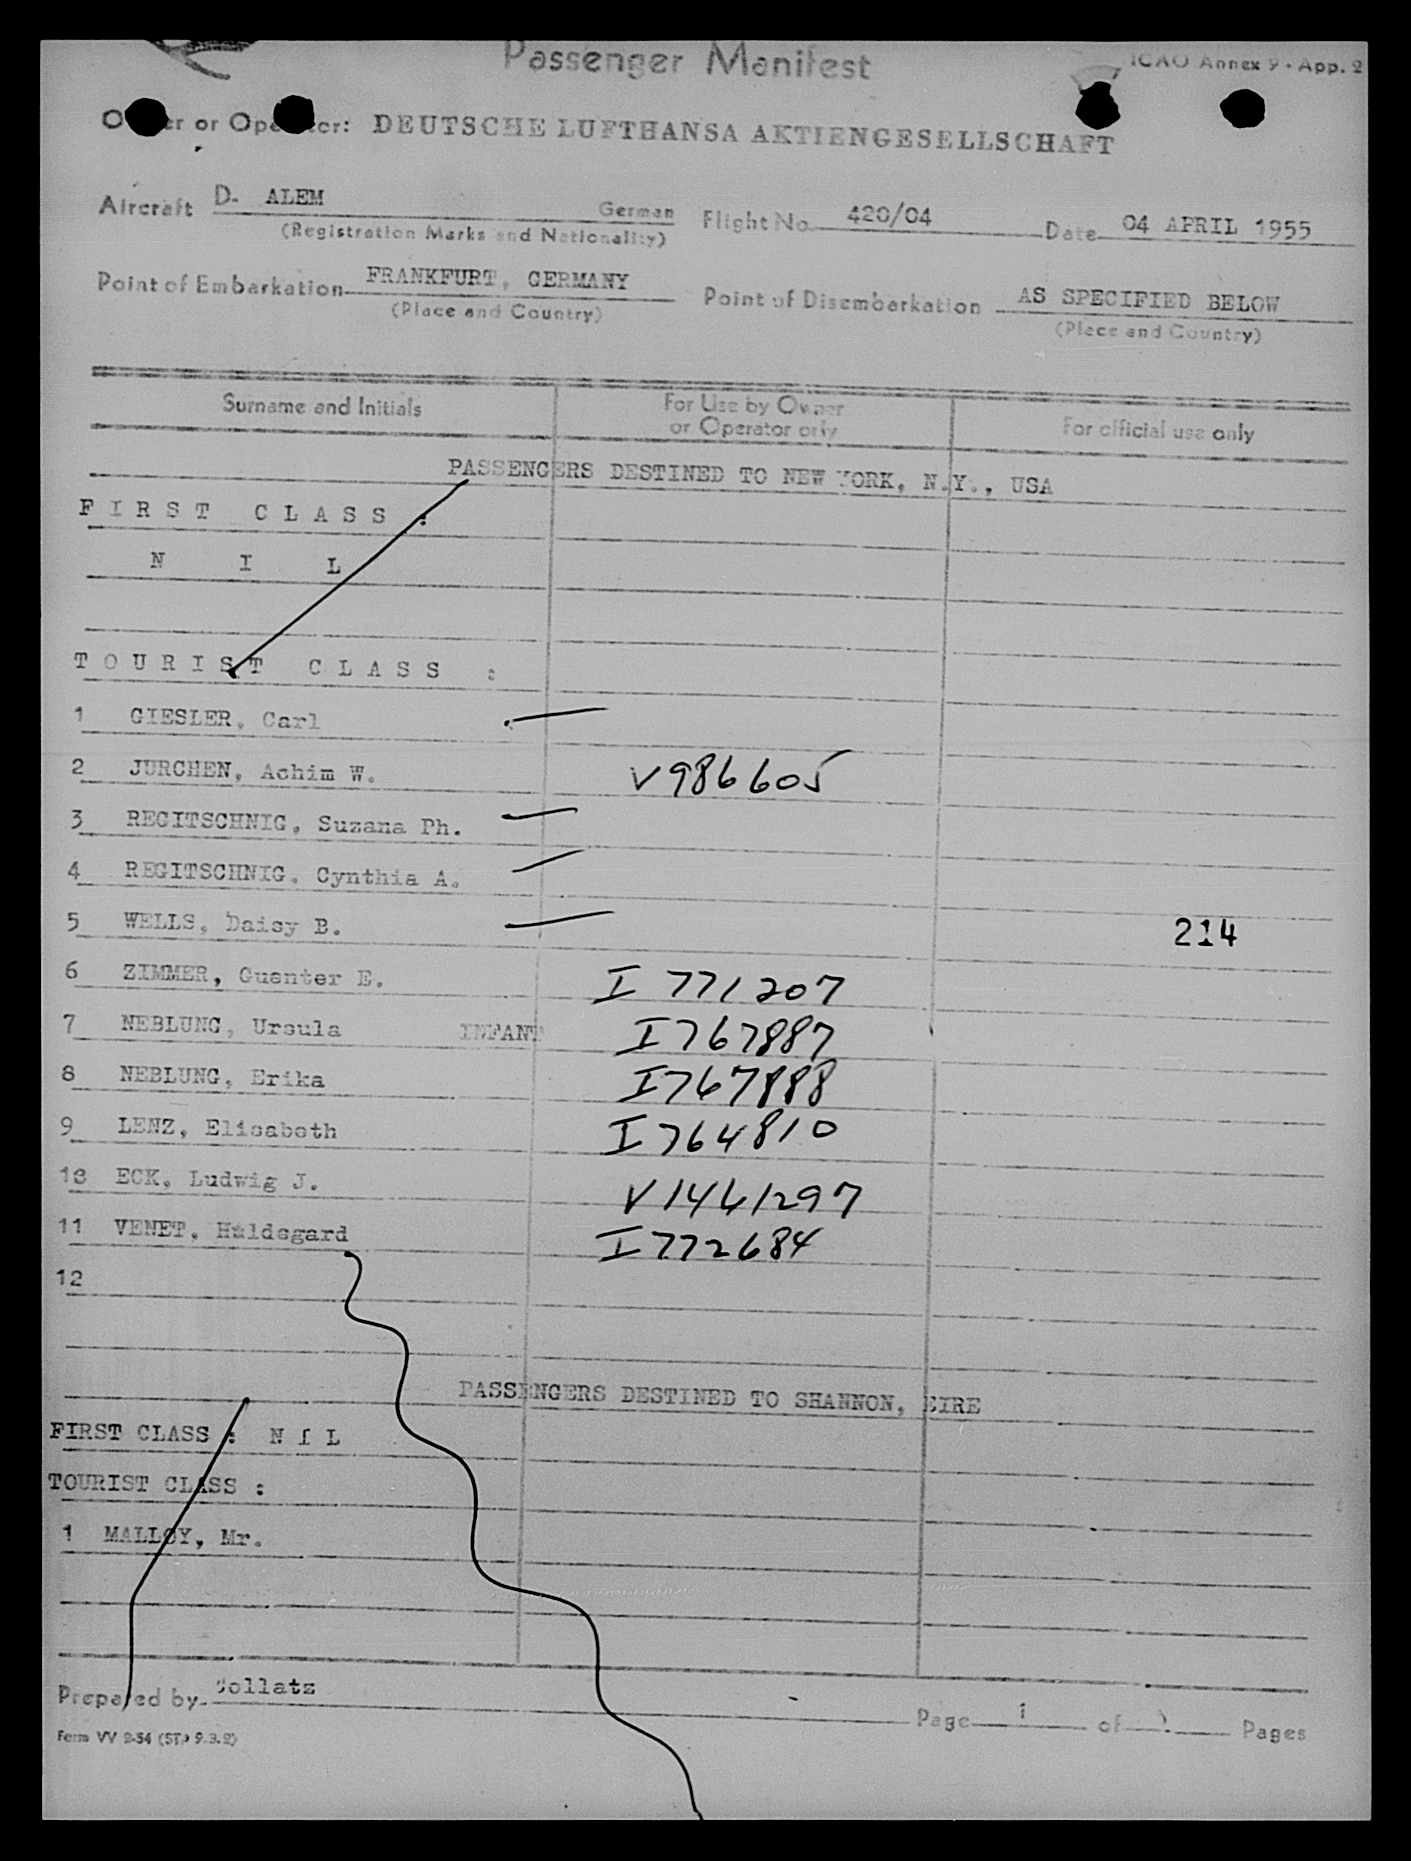 Passenger Manifest
ICAO Annex 9 - App. 2
Owner or Operator: DEUTSCHE LUFTHANSA AKTIENGESELLSCHAFT
Aircraft D- ALEM German Flight No. 420/04 Date 04 APRIL 1955
(Registration Marks and Nationality)
Point of Embarkation FRANKFURT, GERMANY Point of Disembarkation AS SPECIFIED BELOW
(Place and Country) (Place and Country)
Surname and Initials For Use by Owner or Operator only For official use only
PASSENGERS DESTINED TO NEW YORK, N.Y., USA
FIRST CLASS :
N I L
TOURIST CLASS :
1 GIESLER, Carl
2 JURCHEN, Achim W. V986605
3 REGITSCHNIG, Suzana Ph.
4 REGITSCHNIG, Cynthia A.
5 WELLS, Daisy B. 214
6 ZIMMER, Guenter E. I 771207
7 NEBLUNG, Ursula INFANT I767887
8 NEBLUNG, Erika I767888
9 LENZ, Elisabeth I764810
10 ECK, Ludwig J. V1461297
11 VENET, Hildegard I772684
12
PASSENGERS DESTINED TO SHANNON, EIRE
FIRST CLASS : N I L
TOURIST CLASS :
1 MALLOY, Mr.
Prepared by Gollatz
Page 1 of Pages
Form VV 2-54 (STP 9.3.2)